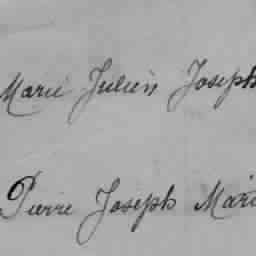 Marie Julien Joseph
Pierre Joseph Marie